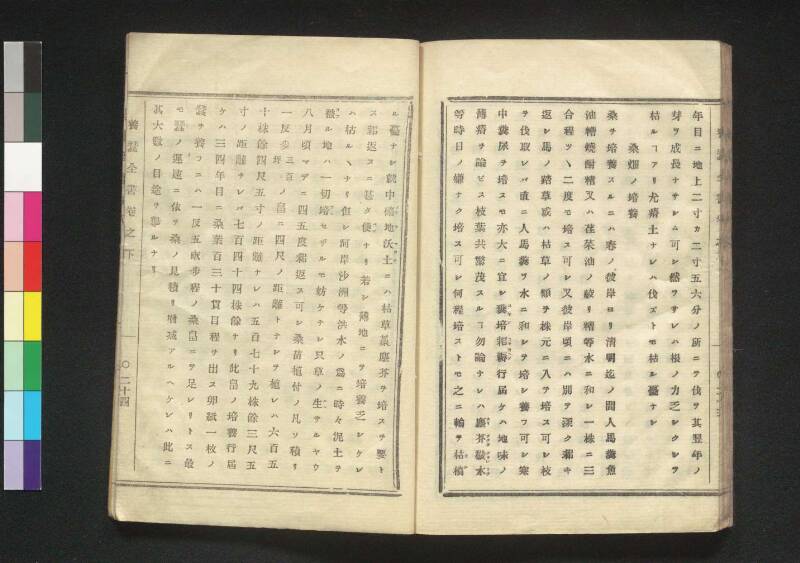 年目ニ地上二寸カ二寸五六分ノ所ニテ伐ヲ其翌年ノ
芽ヲ成長ナサシム可シ然ヲサレハ根ノ力乏シクシテ
枯ルヿアリ尤瘠土ナレハ伐ズトモ枯ル憂ナシ
桑畑ノ培養
桑ヲ培養スルニハ春ノ彼岸ヨリ清明迄ノ間人馬糞魚
油糟焼酎糟又ハ荏菜油ノ絞リ糟等水ニ和シ一株ニ三
合程ツヽ二度モ培ス可シ又彼岸頃ニハ別テ深ク耕キ
返シ馬ノ踏草或ハ枯草ノ類ヲ株元ニ入ヲ培ス可シ枝
ヲ伐取レバ直ニ人馬糞ヲ水ニ和シテ培シ養フ可シ寒
中糞尿ヲ培スモ亦大ニ宜シ糞培耜耨行届ケハ地味ノ
薄瘠ヲ論ビス枝葉共繁茂スルヿ勿論ナレハ塵芥敗水
等時日ノ嫌ナク培ス可シ何程培ストモ之ニ輪ヲ枯槁
ル憂ナシ就中瘠地沃土ニハ枯草藁塵芥ヲ培スヲ要ト
ス耜返スニ甚タ便ナリ若シ薄地ニヲ培養乏シケレ
ハ枯ルヽナリ但シ河岸沙洲等洪水ノ為ニ時々泥土ヲ
澱ル地ハ一切培セザルモ妨ケナシ只草ノ生ヲルヤウ
八月頃マデニ四五度耜返ス可シ桑苗植付ノ凡ソ積リ
一反歩三百坪ノ畠ニ四尺ノ距離トナシヲ植レハ六百五
十株餘四尺五寸ノ距離ナレハ五百七十九株餘三尺五
寸ノ距離ナレバ七百四十四株餘ナリ此畠ノ培養行届
ケハ三四年目ニ桑葉百三十貫目程ヲ出ス卵紙一枚ノ
蠶ヲ養フニハ一反五畝歩程ノ桑畠ニヲ足レリトス最
モ蠶ノ運速ニ依ヲ桑ノ見積リ増減アルヘケレハ此ニ
其大数ノ目途ヲ擧ルナリ
養蠶全書巻之下
〇二十四